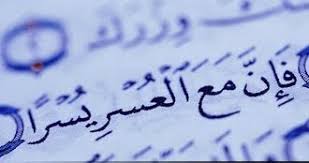 وِزْرَكَ
فَإِنَّ مَعَ ٱلْعُسْرِ يُسْرًا